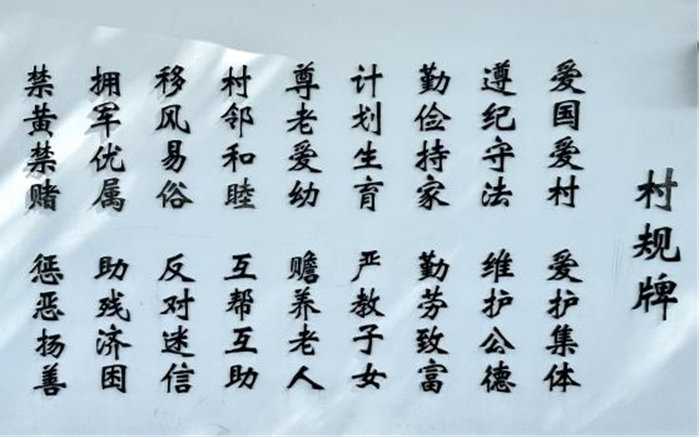 村规牌
爱国爱村 爱护集体
遵纪守法 维护公德
勤俭持家 勤劳致富
计划生育 严教子女
尊老爱幼 赡养老人
村邻和睦 互帮互助
移风易俗 反对迷信
拥军优属 助残济困
禁黄禁赌 惩恶扬善